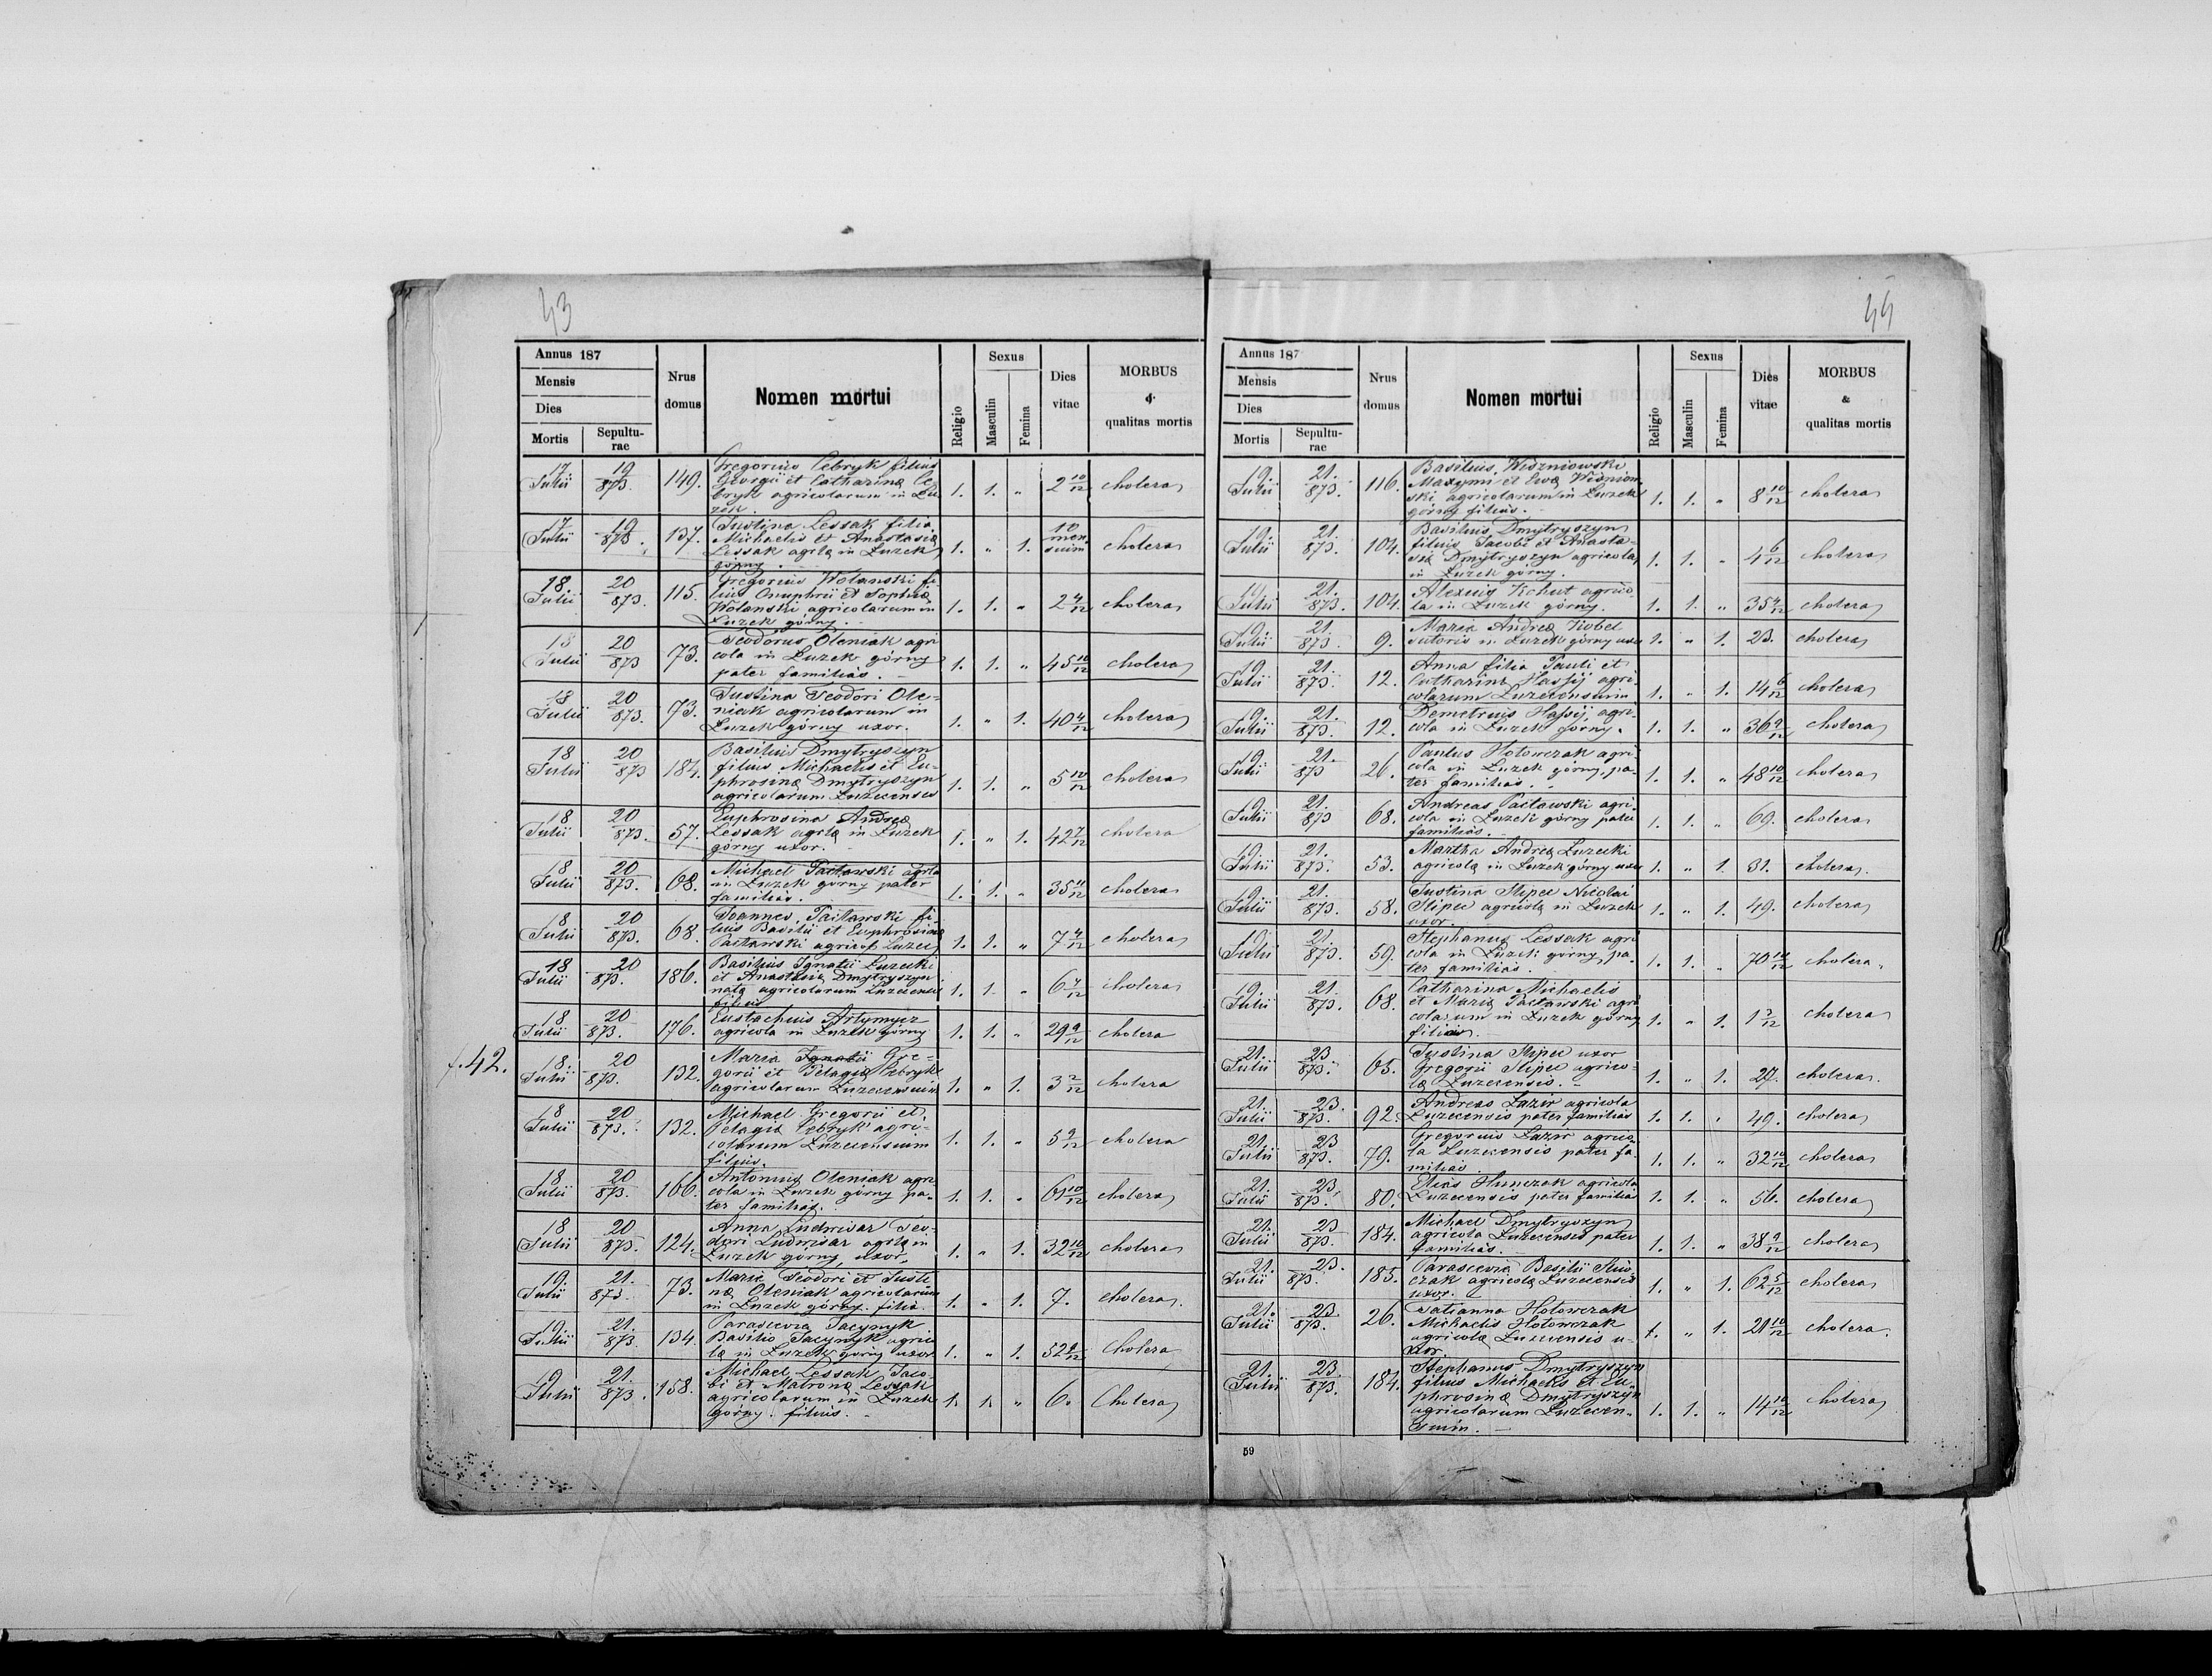 43
Annus 187
Mensis
Dies
Mortis
Sepultu-
rae
Nrus
domus
Nomen mortui
Religio
Sexus
Masculin
Femina
Dies
vitae
MORBUS
&
qualitas mortis
17 Julii 19/873. 149. Gregorius Cebryk filius
Georgii et Catharinæ Ce-
bryk agricolarum in Łu-
zek. 1. 1. „ 2 10/12 cholera
17 Julii 19/873. 137. Justina Lessak filia
Michaelis et Anastasiæ
Lessak agrlæ in Łuzek
górny. 1. „ 1. 10 men-
suum cholera
18. Julii 20/873. 115. Gregorius Wolanski fi-
lius Onuphrii et Sophiæ
Wolanski agricolarum in
Łuzek górny. 1. 1. „ 2 4/12 cholera
18 Julii 20/873 73. Teodorus Oleniak agri
cola in Łuzek górny
pater familias. 1. 1. „ 45 10/12 cholera
18 Julii 20/873. 73. Justina Teodori Ole-
niak agricolarum in
Łuzek górny uxor. 1. „ 1. 40 4/12 cholera
18 Julii 20/873 184. Basilius Dmytryszyn
filius Michaelis et Eu-
phrosinæ Dmytryszyn
agricolarum Łuzecenses 1. 1. „ 5 10/12 cholera
18 Julii 20/873. 57. Euphrosina Andreæ
Lessak agrlæ in Łuzek
górny uxor. 1. „ 1. 42 7/12 cholera
18 Julii 20/873. 68. Michael Pactawski agrla
in Łuzek górny pater
familias. 1. 1. „ 35 11/12 cholera
18 Julii 20/873. 68. Joannes Pactawski fi-
lius Basilii et Euphrosinæ
Pactawski agricol. Łuzec. 1. 1. „ 7 4/12 cholera
18 Julii 20/873. 186. Basilius Ignatii Łuzecki
et Anastasiæ Dmytryszyn
natæ agricolarum Łuzecensi
filius 1. 1. „ 6 4/12 cholera
18 Julii 20/873. 176. Eustachius Artymycz
agricola in Łuzek górny 1. 1. „ 29 9/12 cholera
f. 42.
18. Julii 20/873. 132. Maria Ignatii Gre-
gorii et Pelagiæ Cebryk
agricolarum Łuzecensium 1. „ 1. 3 2/12 cholera
18 Julii 20/873. 132. Michael Gregorii et
Pelagiæ Cebryk agri-
colarum Łuzecensium
filius. 1. 1. „ 5 9/12 cholera
18 Julii 20/873. 166. Antonius Oleniak agri
cola in Łuzek górny pa-
ter familias. 1. 1. „ 61 10/12 cholera
18 Julii 20/873. 124. Anna Ludwisar Teo-
dori Ludwisar agrlæ in
Łuzek górny uxor. 1. „ 1. 32 10/12 cholera
19. Julii 21./873. 73. Maria Teodori et Justi-
næ Oleniak agricolarum
in Łuzek górny. filia. 1. „ 1. 7. cholera.
19. Julii 21./873 134. Parascevia Jacynyk
Basilio Jacynyk agrico
læ in Łuzek górny uxor 1. „ 1. 52 9/12 Cholera
19 Julii 21./873. 158. Michael Lessak Jaco-
bi et Matronæ Lessak
agricolarum in Łuzek
górny. filius. 1. 1. „ 6. Cholera
44
Annus 187
Mensis
Dies
Mortis
Sepultu-
rae
Nrus
domus
Nomen mortui
Religio
Sexus
Masculin
Femina
Dies
vitae
MORBUS
&
qualitas mortis
19. Julii 21./873. 116. Basilius Wiszniowski
Maxymi et Evæ Wiśniow-
ski agricolarum in Łuzek
górny filius. 1. 1. „ 8 10/12 cholera
19. Julii 21./873. 104. Basilius Dmytryszyn
filius Jacobi et Anasta-
siæ Dmytryszyn agricola
in Łuzek górny. 1. 1. „ 4 6/12 cholera
19. Julii 21./873. 104. Alexius Kohut agrico-
la in Łuzek górny. 1. 1. „ 35 4/12 cholera
19. Julii 21./873. 9. Maria Andreæ
sutoris in Łuzek górny uxor 1. „ 1. 23. cholera
19. Julii 21./873. 12. Anna filia Pauli et
Catharinæ Hassij agri-
colarum Łuzecensium 1. „ 1. 14 6/12 cholera
19. Julii 21./873. 12. Demetrius Hassij, agri-
cola in Łuzek górny. 1. 1. „ 36 9/12 cholera
19 Julii 21./873 26. Paulus Hotowczak agri
cola in Łuzek górny, pa-
ter familias. 1. 1. „ 48 10/12 cholera
19 Julii 21./873 68. Andreas Pactawski agri-
cola in Łuzek górny pater
familias. 1. 1. „ 69. cholera
19. Julii 21./873. 53. Martha Andreæ Łuzecki
agricolæ in Łuzek górny uxor 1. „ 1. 31. cholera.
19 Julii 21./873. 58. Justina Slipec Nicolai
Slipec agricolæ in Łuzek
uxor. 1. „ 1. 49. cholera
19 Julii 21./873. 59. Stephanus Lessak agri
cola in Łuzek górny, pa-
ter familias. 1. 1. „ 70 10/12 cholera.
19. Julii 21./873. 68. Catharina Michaelis
et Mariæ Pactawski agri
colarum in Łuzek górny
filia. 1. „ 1. 1 2/12 cholera
21. Julii 23/873. 65. Justina Slipec uxor
Gregorii Slipec agrico-
læ Łuzecensis. 1. „ 1. 27. cholera.
21. Julii 23./873. 92. Andreas Łazir agricola
Łuzecensis pater familias 1. 1. „ 49. cholera
21. Julii 23/873. 79. Gregorius Łazir agrico
la Łuzecensis pater fa-
milias. 1. 1. „ 32 10/12 cholera
21. Julii 23./873. 80. Elias Hunczak agricola
Łuzecensis pater familias 1. 1. „ 56. cholera
21. Julii 23/873. 184. Michael Dmytryszyn
agricola Łuzecensis pater
familias. 1. 1. „ 38 9/12 cholera
21. Julii 23./873. 185. Parascevia Basilii
agricolæ Łuzecensis
uxor. 1. „ 1. 62 5/12 cholera
21. Julii 23./873. 26. Tatianna Hotowczak
Michaelis Hotowczak
agricolæ Łuzecensis u-
xor. 1. „ 1. 21 10/12 cholera.
21. Julii 23./873. 184. Stephanus Dmytryszyn
filius Michaelis et Eu-
phrosinæ Dmytryszyn
agricolarum Łuzecen-
sium. 1. 1. „ 14 10/12 cholera
59